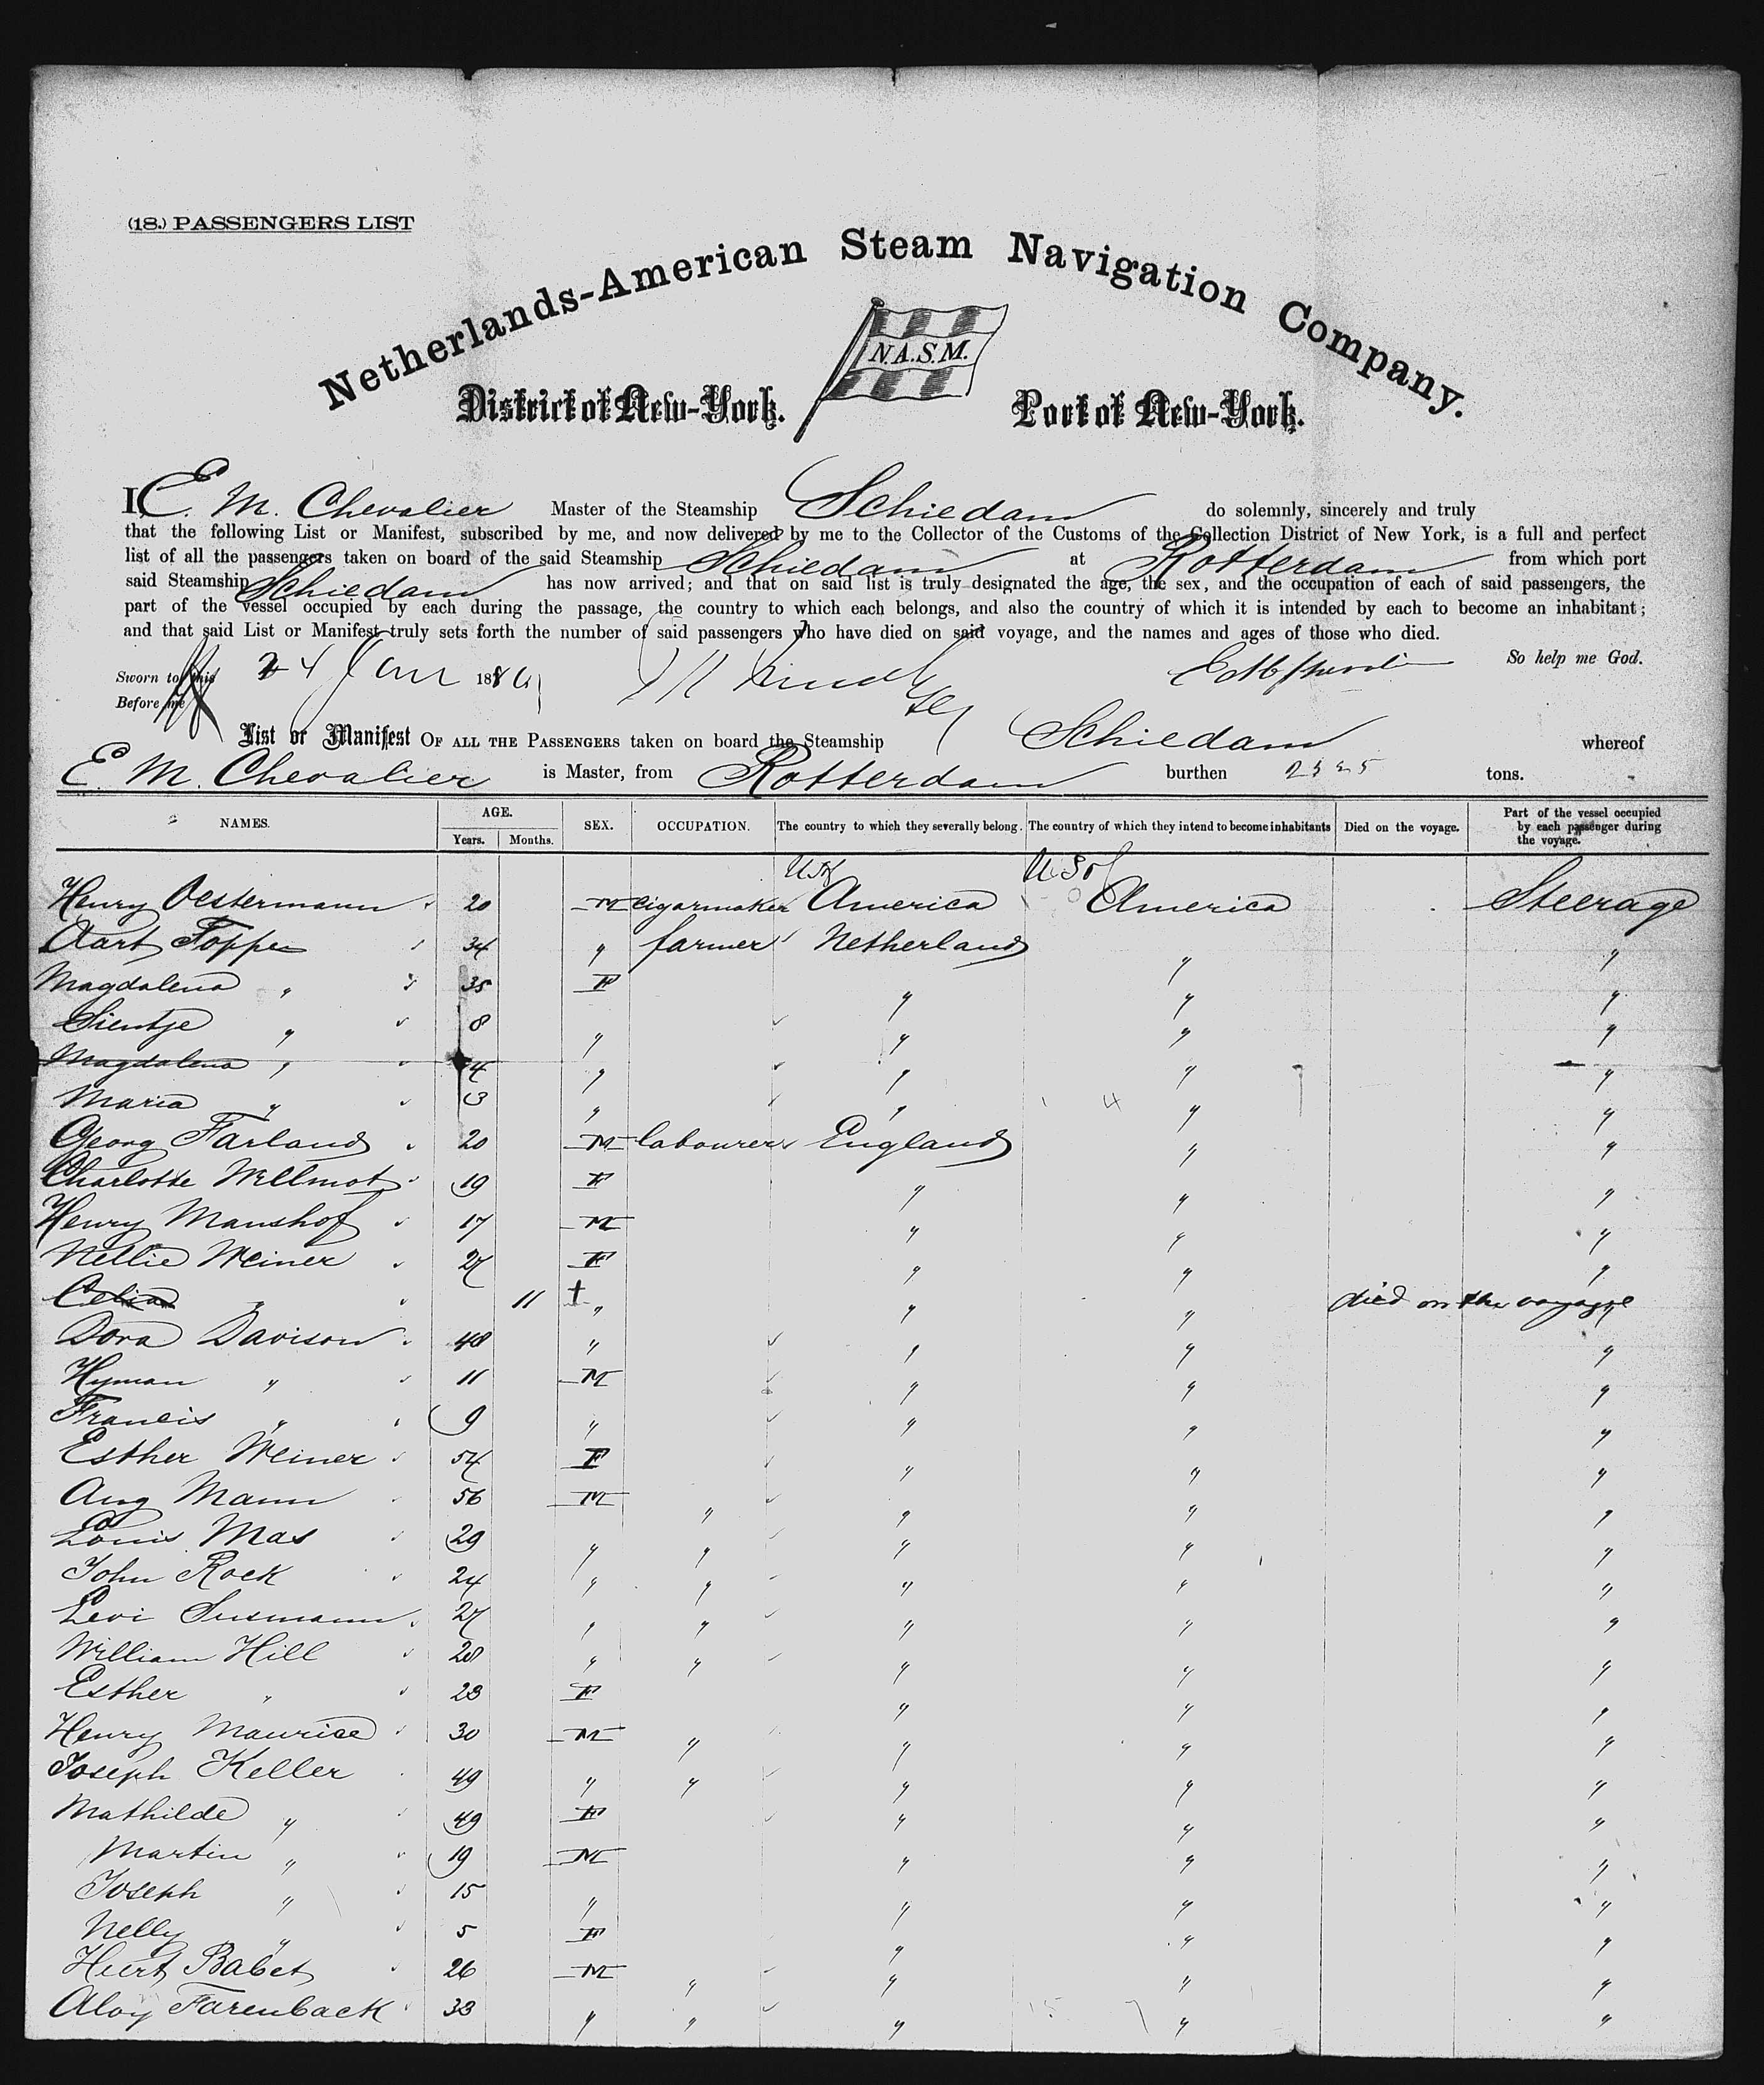 (18.) PASSENGERS LIST
Netherlands-American Steam Navigation Company.
N.A.S.M.
District of New-York. Port of New-York.
I, E. M. Chevalier Master of the Steamship Schiedam do solemnly, sincerely and truly
that the following List or Manifest, subscribed by me, and now delivered by me to the Collector of the Customs of the Collection District of New York, is a full and perfect
list of all the passengers taken on board of the said Steamship Schiedam at Rotterdam from which port
said Steamship Schiedam has now arrived; and that on said list is truly designated the age, the sex, and the occupation of each of said passengers, the
part of the vessel occupied by each during the passage, the country to which each belongs, and also the country of which it is intended by each to become an inhabitant;
and that said List or Manifest truly sets forth the number of said passengers who have died on said voyage, and the names and ages of those who died.
So help me God.
Sworn to this 24 Jan 188
Before me
List or Manifest OF ALL THE PASSENGERS taken on board the Steamship Schiedam whereof
E. M. Chevalier is Master, from Rotterdam burthen tons.
NAMES. AGE. Years. Months. SEX. OCCUPATION. The country to which they severally belong. The country of which they intend to become inhabitants Died on the voyage. Part of the vessel occupied by each passenger during the voyage.
U.S of U S of
Henry Oestermann 20 M cigarmaker America America Steerage
Aart Toppen 34 " farmer Netherland " "
Magdalena " 35 F " " "
Sientje " 8 " " " "
Magdalena " 4 " " " "
Maria " 3 " " " "
Georg Farland 20 M labourer England " "
Charlotte Willmot 19 F " " "
Henry Manshof 17 M " " "
Nellie Weiner 27 F " " "
Celia " 11 † " " " died on the voyage "
Dora Davison 48 " " " "
Hyman " 11 M " " "
Francis " 9 " " " "
Esther Weiner 54 F " " "
Aug Mann 56 M " " " "
Louis Mas 29 " " " " "
John Rock 24 " " " " "
Levi Susmann 27 " " " " "
William Hill 28 " " " " "
Esther " 23 F " " "
Henry Maurice 30 M " " " "
Joseph Keller 49 " " " " "
Mathilde " 49 F " " "
Martin " 19 M " " "
Joseph " 15 " " " "
Nelly " 5 F " " "
Huert Babet 26 M " " " "
Aloy Farenback 33 " " " " "